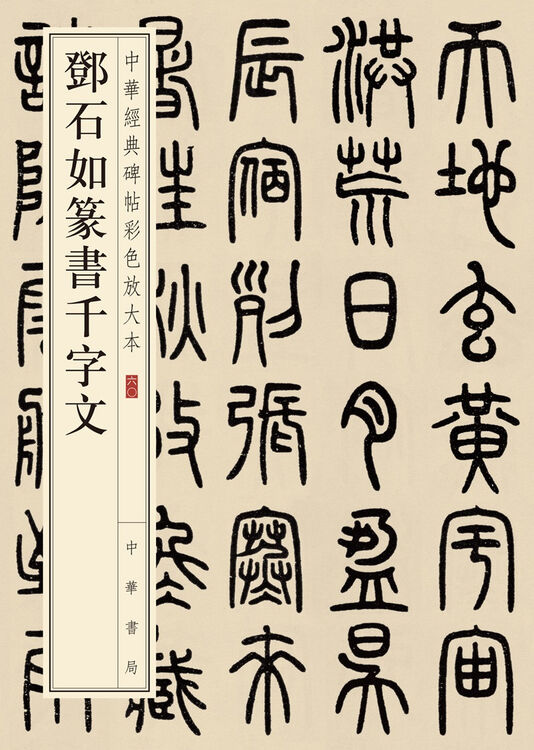 天地玄黃宇宙
洪荒日月盈昃
辰宿列張寒來
暑往秋收冬藏
中華經典碑帖彩色放大本 六〇
中華書局
鄧石如篆書千字文